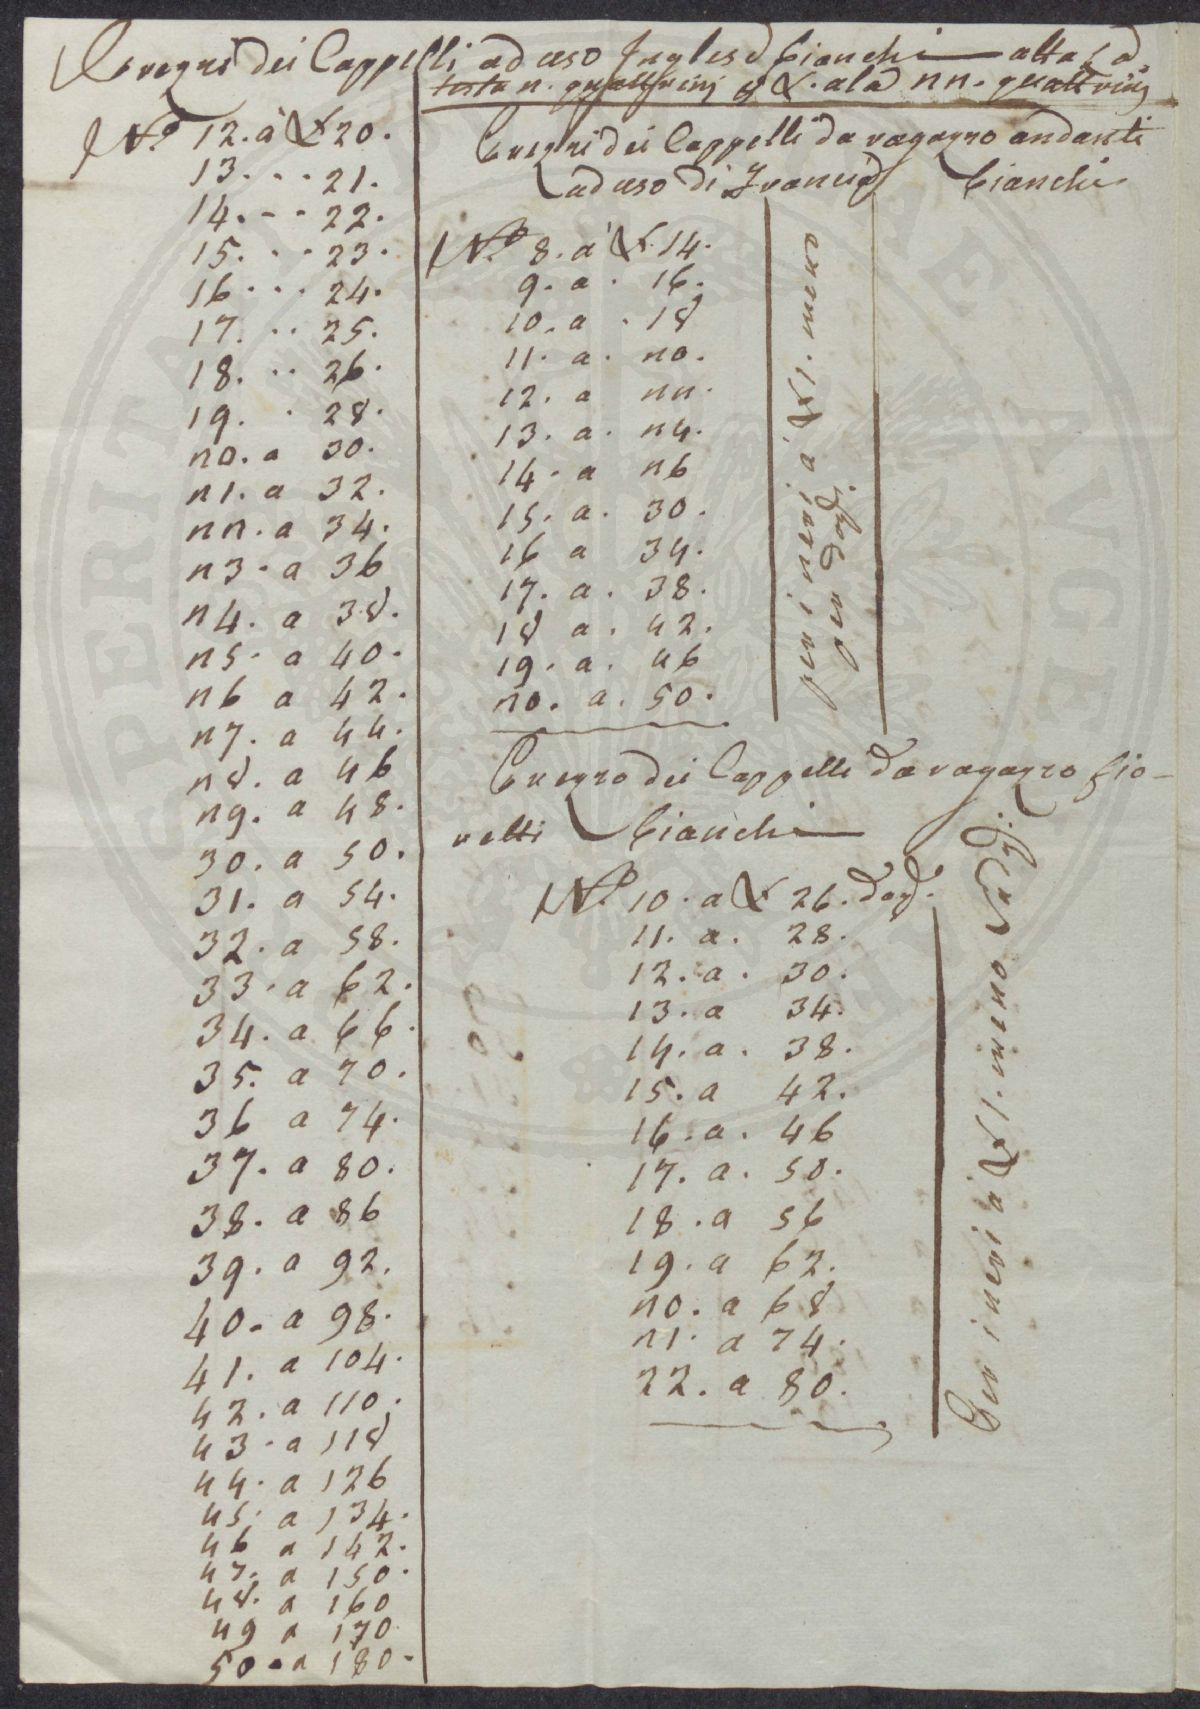 Prezzi dei Cappelli ad uso Inglese bianchi alta la
testa n. quattrini 8 & ala nn. quattrini
N.º 12. a £ 20.
13. . . 21.
14. . . 22.
15. . . 23.
16 . . . 24.
17. . . 25.
18. . . 26.
19. . 28.
n0. a 30.
n1. a 32.
nn. a 34.
n3. a 36
n4. a 38.
n5. a 40.
n6 a 42.
n7. a 44.
n8. a 46
n9. a 48.
30. a 50.
31. a 54.
32. a 58.
33. a 62.
34. a 66.
35. a 70.
36 a 74.
37. a 80.
38. a 86
39. a 92.
40. a 98.
41. a 104.
42. a 110.
43. a 118
44. a 126
45. a 134.
46 a 142.
47. a 150.
48. a 160
49 a 170
50. a 180.
Prezzi dei Cappelli da ragazzo andanti
ad uso di Francia bianchi
N.º 8. a £ 14.
9. a . 16.
10. a . 18
11. a. n0.
12. a nn.
13. a. n4.
14. a n6
15. a. 30.
16 a 34.
17. a. 38.
18 a. 42.
19. a. 46
n0. a. 50.
per i neri a £ 1. meno
Prezzo dei Cappelli da ragazzo fio-
retti bianchi
N.º 10. a £ 26.
11. a. 28.
12. a. 30.
13. a 34.
14. a. 38.
15. a 42.
16. a. 46
17. a. 50.
18. a 56
19. a 62.
n0. a 68
n1. a 74.
22. a 80.
Per i neri a £ 1. meno